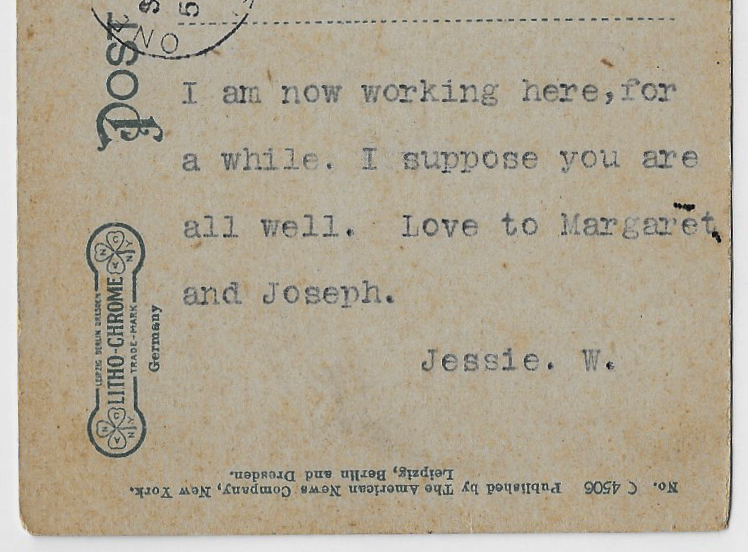 NO
S
5
Post
I am now working here,for
a while. I suppose you are
all well. Love to Margaret
and Joseph.
Jessie. W.
LEIPZIG BERLIN DRESDEN
LITHO-CHROME
TRADE-MARK
Germany
No. C 4506 Published by The American News Company, New York.
Leipzig, Berlin and Dresden.